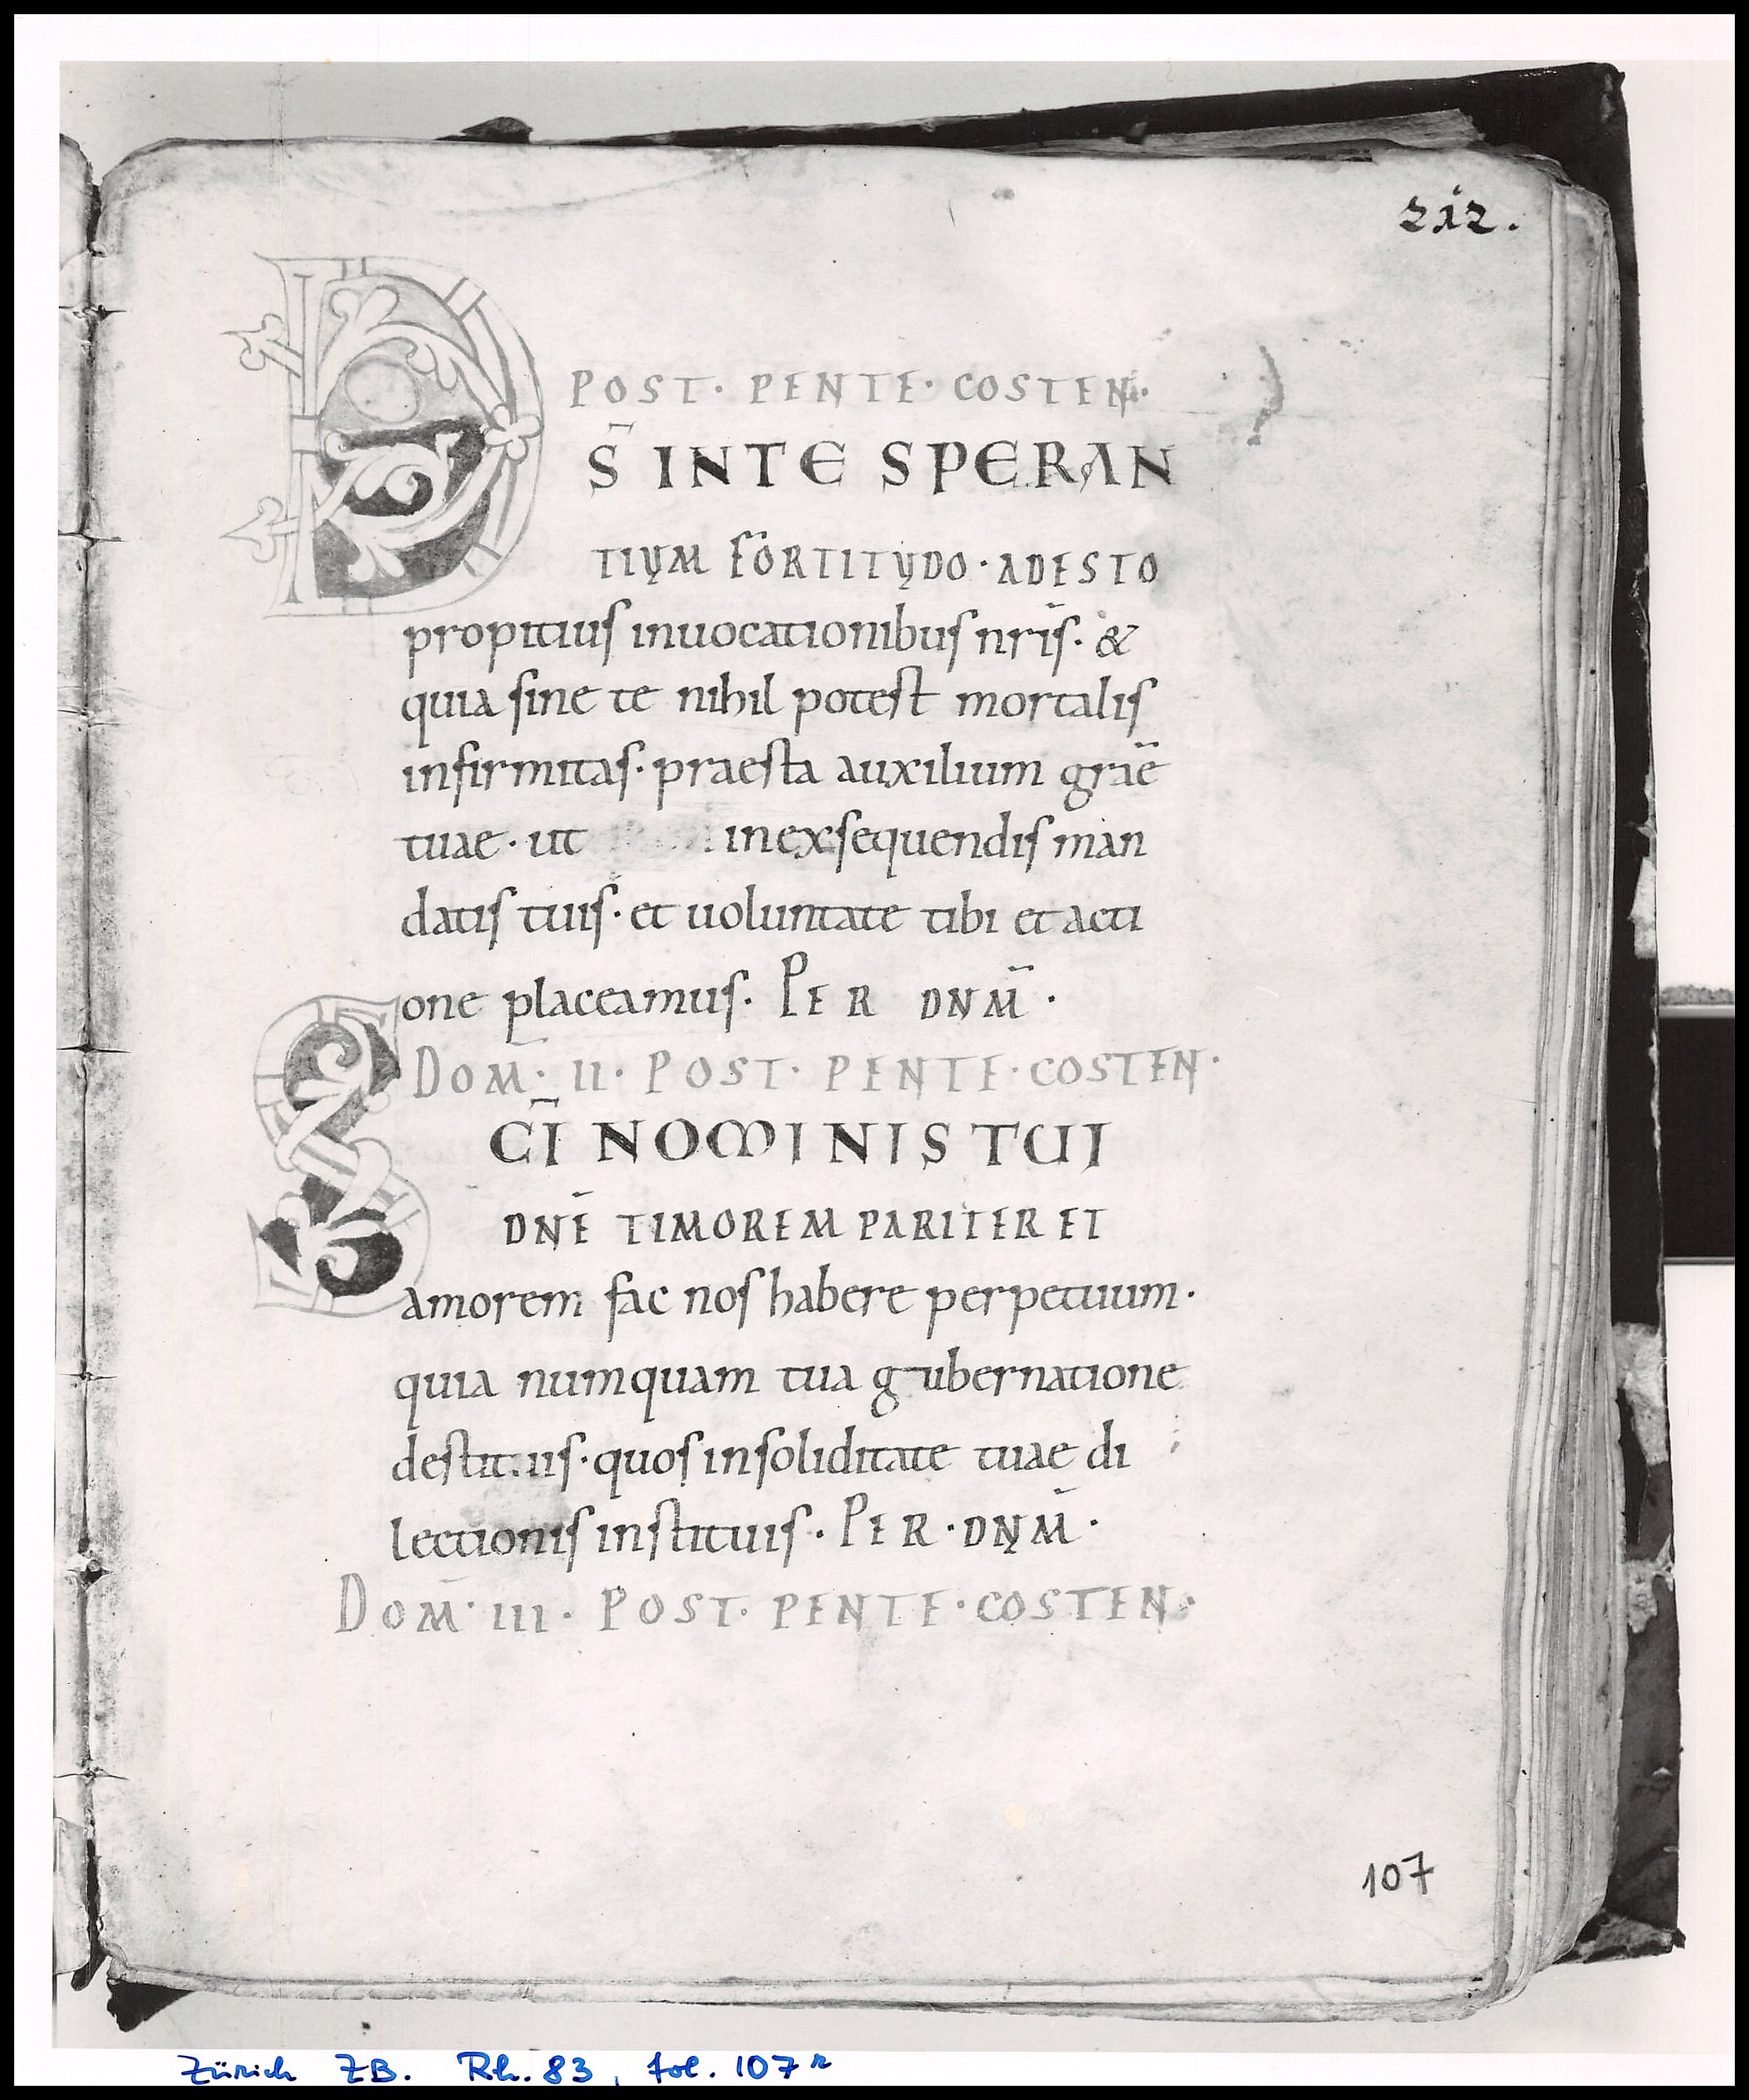 212.
POST · PENTE · COSTEN ·
DS̄ IN TE SPERAN
TIUM FORTITUDO · ADESTO
propitius inuocationibus nr̄is · &
quia sine te nihil potest mortalis
infirmitas · praesta auxilium grāe
tuae · ut in exsequendis man
datis tuis · et uoluntate tibi et acti
one placeamus · PER DNM̄ ·
DOM̄ · II · POST · PENTE · COSTEN ·
SC̄I NOMINIS TUI
DNĒ TIMOREM PARITER ET
amorem fac nos habere perpetuum ·
quia numquam tua gubernatione
destituis · quos in soliditate tuae di
lectionis instituis · PER · DNM̄ ·
DOM̄ · III · POST · PENTE · COSTEN ·
107
Zürich ZB. Rh. 83, fol. 107r